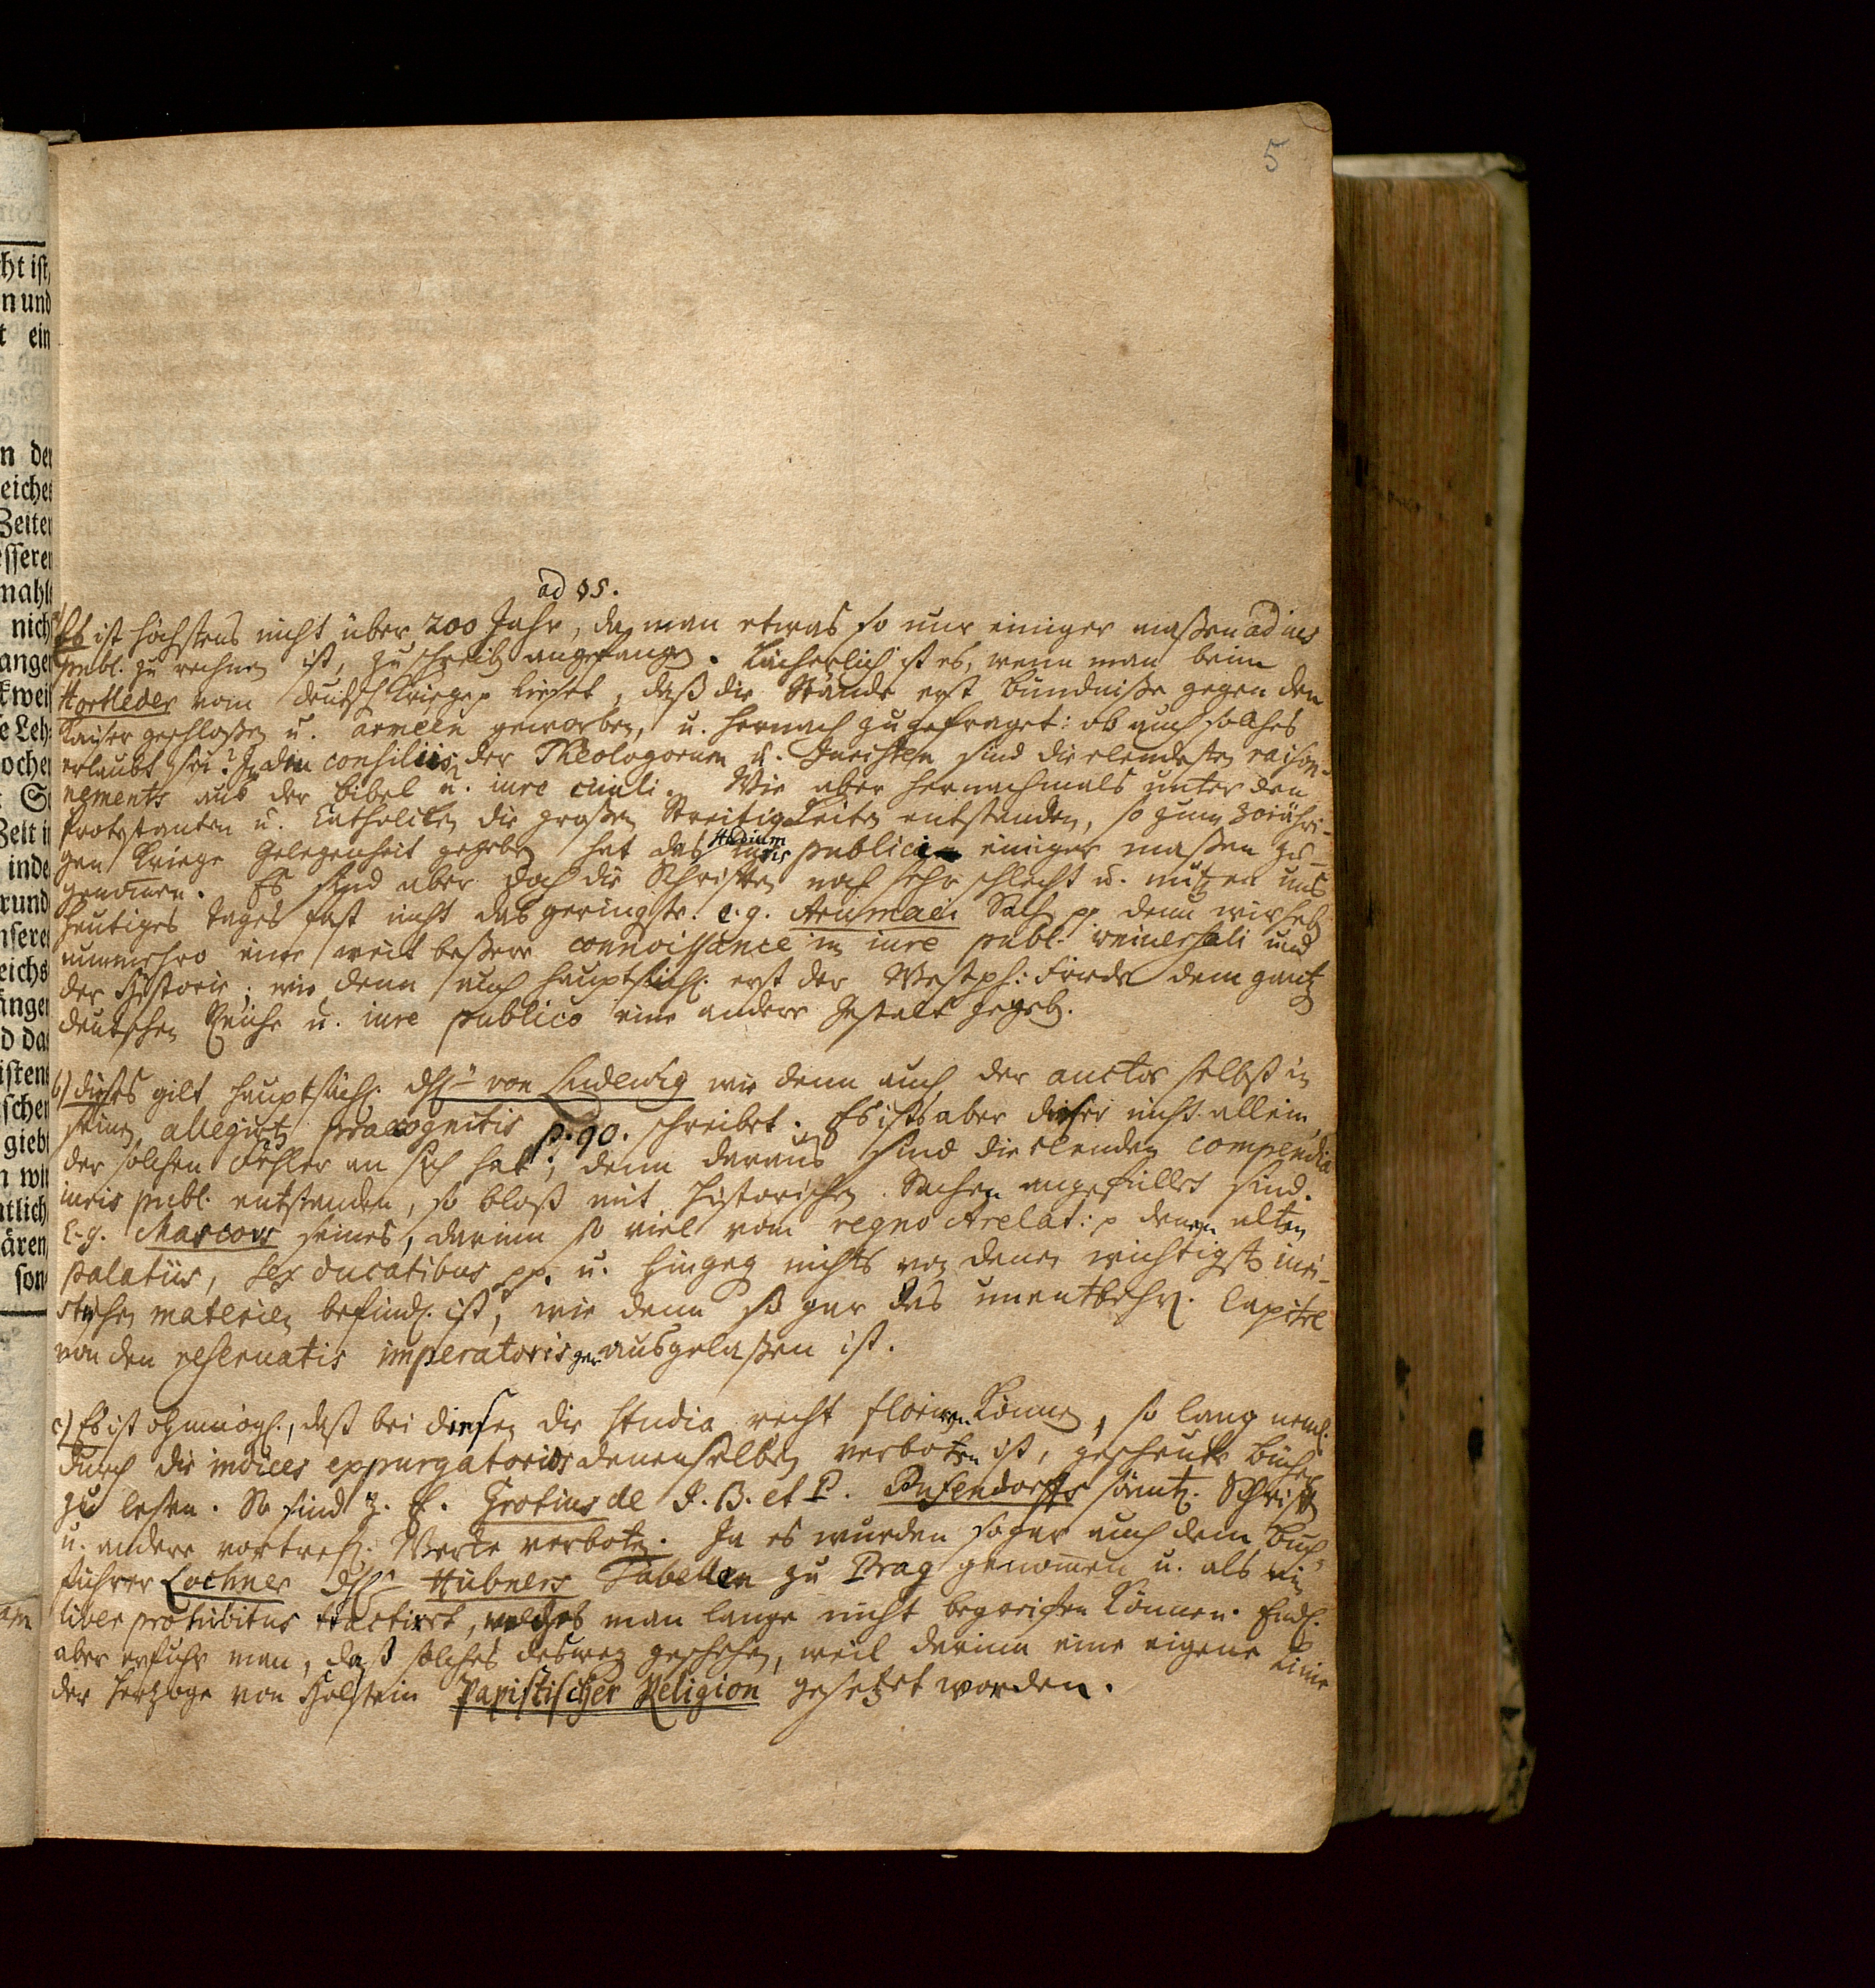 5
ad §5.
a) Es ist höchstens nicht über 200 Jahr, da man etwas so nur einiger maßen ad ius
publ. zu rechnen ist, zu schreiben angefangen. Lächerlich ist es, wenn man beim
Hortleder vom deutsch Kriege p lieset, daß die Stände erst Bündniße gegen den
Kaiser geschloßen u. armeen geworben, u. hernach zu gefraget: ob auch solches
erlaubt sei? In den consiliis der Theologorum u. Juristen sind die elendesten raison-
nements aus der Bibel u. iure ciuili. Wie aber hernachmals unter den
Protestanten u. Catholicken die großen Streitigkeiten entstanden, so zum 30iähri-
gen Kriege Gelegenheit gegeben hat das studium iuris publici einiger maßen zu-
genom̄en. Es sind aber doch die Schriften noch sehr schlecht u. nutzen uns
heutiges Tages fast nicht das geringste. e.g. Arumaei Sachen pp. denn wir haben
nunmehro eine weit beßere connoissance in iure publ. uniuersali und
der Historie; wie denn auch hauptsächl. erst der Westph: Friede dem gantzen
deutschen Reiche u. iure publico eine andere Gestalt gegeben.
b) dieses gilt hauptsächl. dH. von Ludewig wie denn auch der auctor selbst in
seinen allegirten praecognitis p. 90. schreibet. Es ists aber dieser nicht allein
der solchen Fehler an sich hat, denn daraus sind die elenden compendia
iuris publ. entstanden, so bloß mit historischen Sachen angefüllet sind.
E.g. Mascovs seines, darinn so viel vom regno Arelat: p denen alten
palatiis, sex ducatibus pp. u. hingegen nichts von denen wichtigsten iuri-
stischen materien befindl. ist, wie denn so gar das unentbehrl. Capitel
von den reseruatis imperatoris gar ausgelaßen ist.
c) Es ist ohnmögl., daß bei diesen die studia recht floriren können, so lang neml.
durch die indices expurgatorios denenselben verboten ist, gescheute Bücher
zu lesen. So sind z. E. Grotius de J. B. et P. Pufendorffs sämtl. Schriften
u. andere vortrefl. Werke verboten. Ja es wurden sogar auch dem Buch-
führer Lochner dH. Hübners Tabellen zu Prag genom̄en u. als ein
liber prohibitus tractiret, welches man lange nicht begreifen können. Endl.
aber erfuhr man, daß solches deswegen geschehen, weil darinn eine eigene Linie
der Hertzoge von Holstein Papistischer Religion gesetzet worden.